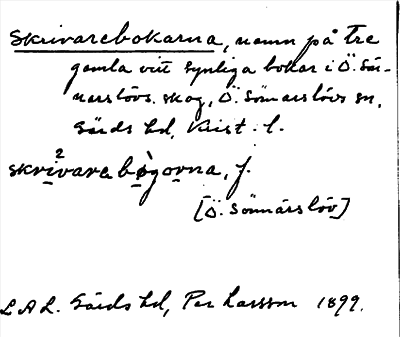 Skrivarebokarna, namn på tre
gamla vitt synliga bokar i Ö. Sön-
narslövs. skog, Ö. Sönnarslövs sn,
Gärds hd, Krist. l.
skrivare bø̀gorna, f.
[Ö. Sönnarslöv]
L A L. Gärds hd, Per Larsson 1899.